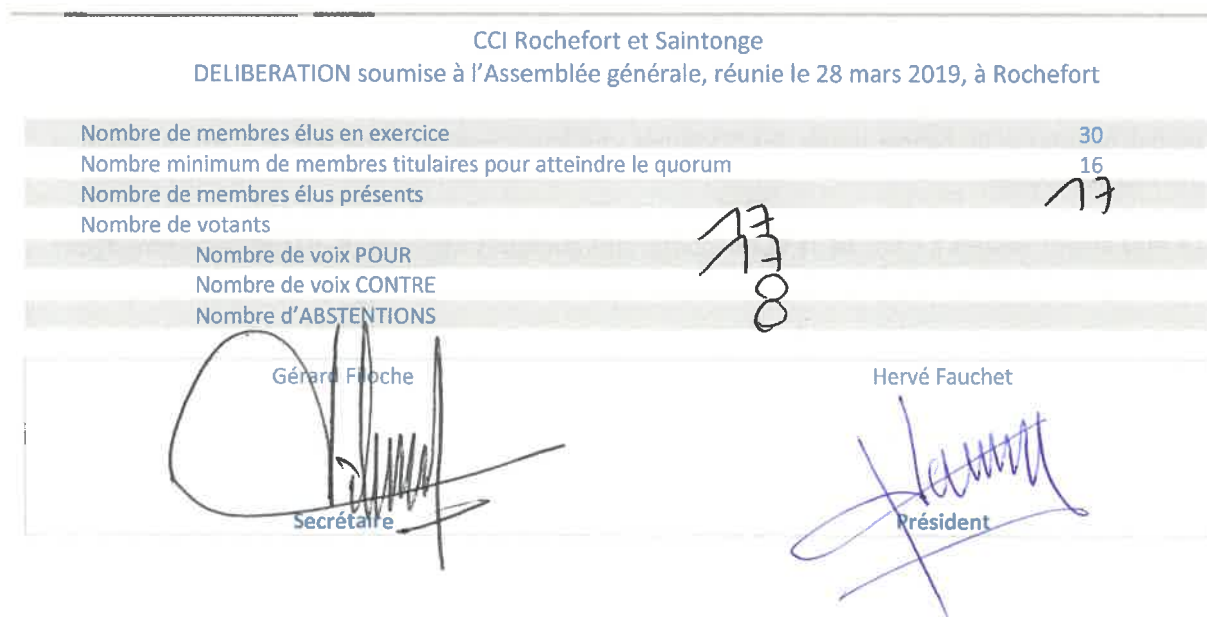 CCI Rochefort et Saintonge
DELIBERATION soumise à l'Assemblée générale, réunie le 28 mars 2019, à Rochefort
Nombre de membres élus en exercice 30
Nombre minimum de membres titulaires pour atteindre le quorum 16
Nombre de membres élus présents 17
Nombre de votants 17
Nombre de voix POUR 17
Nombre de voix CONTRE 0
Nombre d'ABSTENTIONS 0
Gérard Filoche Hervé Fauchet
Secrétaire Président